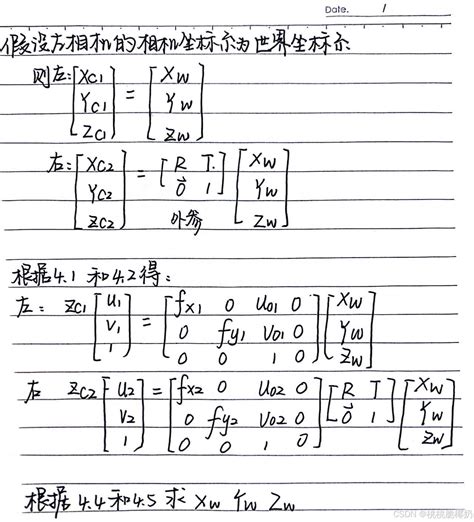 Date. /
假设左相机的相机坐标系为世界坐标系
则左: [Xc1 Yc1 Zc1] = [Xw Yw Zw]
右: [Xc2 Yc2 Zc2] = [R T 0⃗ 1] [Xw Yw Zw]
外参
根据4.1和4.2得:
左: Zc1 [u1 v1 1] = [fx1 0 u01 0 0 fy1 v01 0 0 0 1 0] [Xw Yw Zw]
右 Zc2 [u2 v2 1] = [fx2 0 u02 0 0 fy2 v02 0 0 0 1 0] [R T 0⃗ 1] [Xw Yw Zw]
根据4.4和4.5求 Xw Yw Zw
CSDN